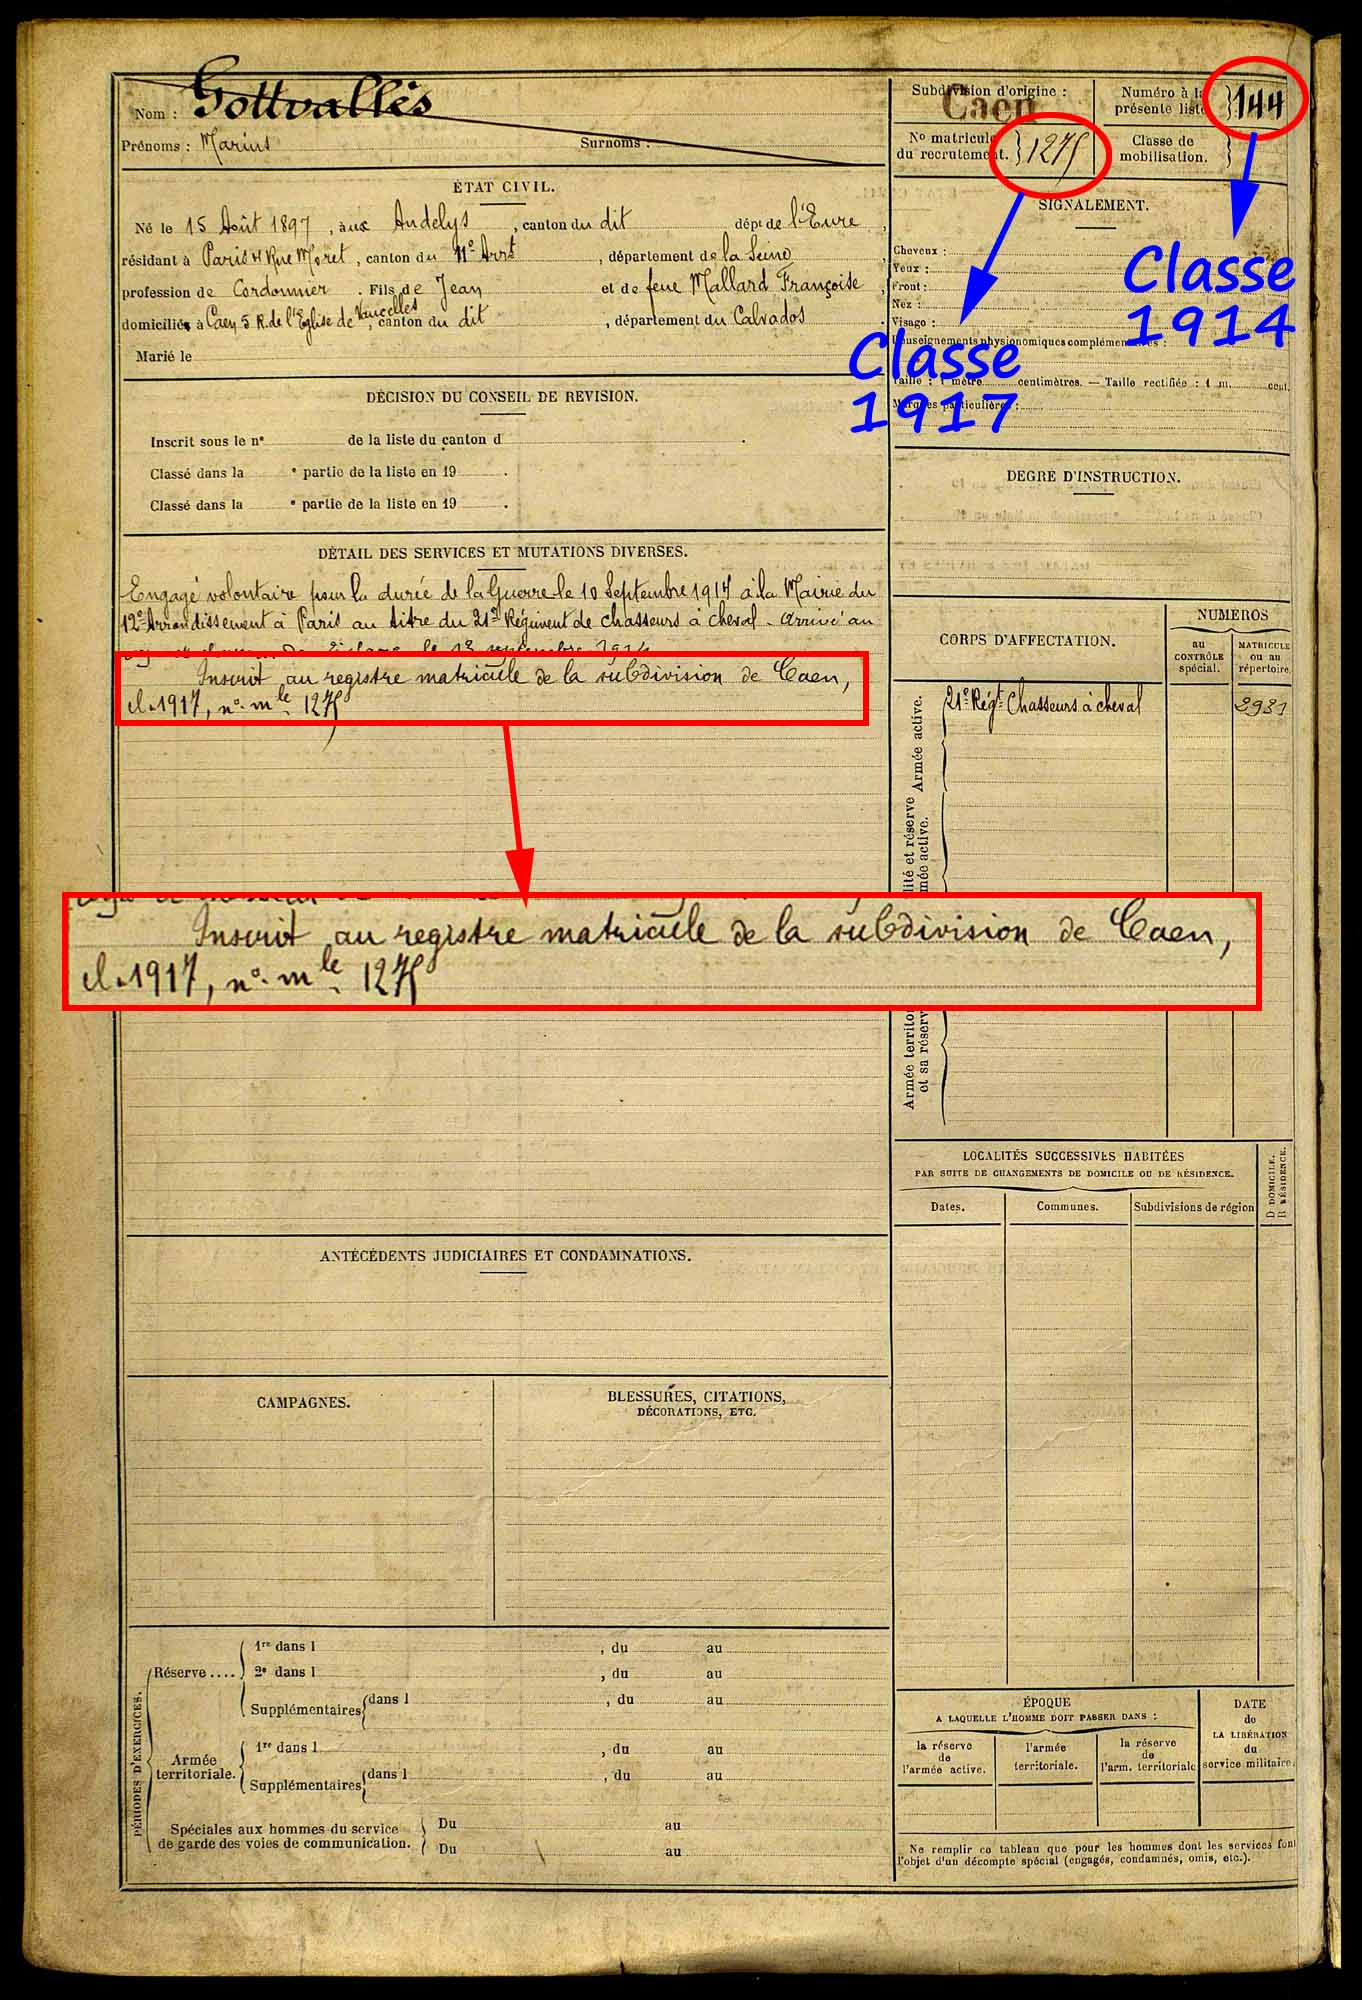 Nom : Gottvallès
Prénoms : Marius Surnoms :
Subdivision d'origine :
Caen
Numéro à la
présente liste
144
No matricule
du recrutement.
1275
Classe de
mobilisation.
ÉTAT CIVIL.
Né le 15 Août 1897, à aux Andelys, canton du dit dépt de l'Eure,
résidant à Paris 4 Rue Moret, canton du 11e Arrt, département de la Seine
profession de Cordonnier. Fils de Jean et de feue Mallard Françoise
domiciliés à Caen 5 R. de l'Eglise de Vaucelles, canton du dit, département du Calvados.
Marié le
SIGNALEMENT.
Cheveux :
Yeux :
Front :
Nez :
Visage :
Renseignements physionomiques complémentaires :
Taille : 1 mètre centimètres. — Taille rectifiée : 1 m. cent.
Marques particulières :
Classe
1917
Classe
1914
DÉCISION DU CONSEIL DE REVISION.
Inscrit sous le n° de la liste du canton d .
Classé dans la e partie de la liste en 19 .
Classé dans la e partie de la liste en 19 .
DEGRÉ D'INSTRUCTION.
DÉTAIL DES SERVICES ET MUTATIONS DIVERSES.
Engagé volontaire pour la durée de la Guerre le 10 Septembre 1914 à la Mairie du
12e Arrondissement à Paris au titre du 21e Régiment de chasseurs à cheval - arrivé au
le 13 septembre 1914
Inscrit au registre matricule de la subdivision de Caen,
cl. 1917, n°. mle. 1275
CORPS D'AFFECTATION.
NUMEROS
au
CONTRÔLE
spécial.
MATRICULE
ou au
répertoire
Armée active.
21e Régt Chasseurs à cheval
2921
lité et réserve
mée active.
Inscrit au registre matricule de la subdivision de Caen,
cl. 1917, n°. mle. 1275
Armée territor
et sa réserv
LOCALITÉS SUCCESSIVES HABITÉES
PAR SUITE DE CHANGEMENTS DE DOMICILE OU DE RÉSIDENCE.
Dates.
Communes.
Subdivisions de région
D DOMICILE.
R RÉSIDENCE.
ANTÉCÉDENTS JUDICIAIRES ET CONDAMNATIONS.
CAMPAGNES.
BLESSURES, CITATIONS,
DÉCORATIONS, ETC.
PÉRIODES D'EXERCICES.
Réserve ....
1re dans l , du au
2e dans l , du au
Supplémentaires dans l , du au
Armée
territoriale.
1re dans l , du au
Supplémentaires dans l , du au
Spéciales aux hommes du service
de garde des voies de communication.
Du au
Du au
ÉPOQUE
A LAQUELLE L'HOMME DOIT PASSER DANS :
la réserve
de
l'armée active.
l'armée
territoriale.
la réserve
de
l'arm. territoriale
DATE
de
LA LIBÉRATION
du
service militaire.
Ne remplir ce tableau que pour les hommes dont les services font
l'objet d'un décompte spécial (engagés, condamnés, omis, etc.).